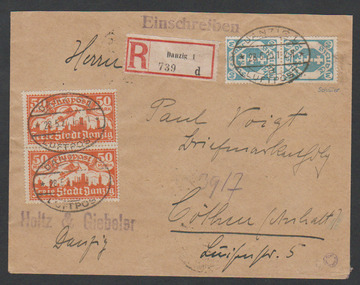 Einschreiben
Herrn
R
Danzig 1
739 d
DANZIG
LUFTPOST
50 50
Freie Stadt Danzig
LUFTPOST
50 50
Freie Stadt Danzig
LUFTPOST
Paul Voigt
Briefmarkenhdlg
Cöthen (Anhalt)
Holtz & Giebeler
Danzig